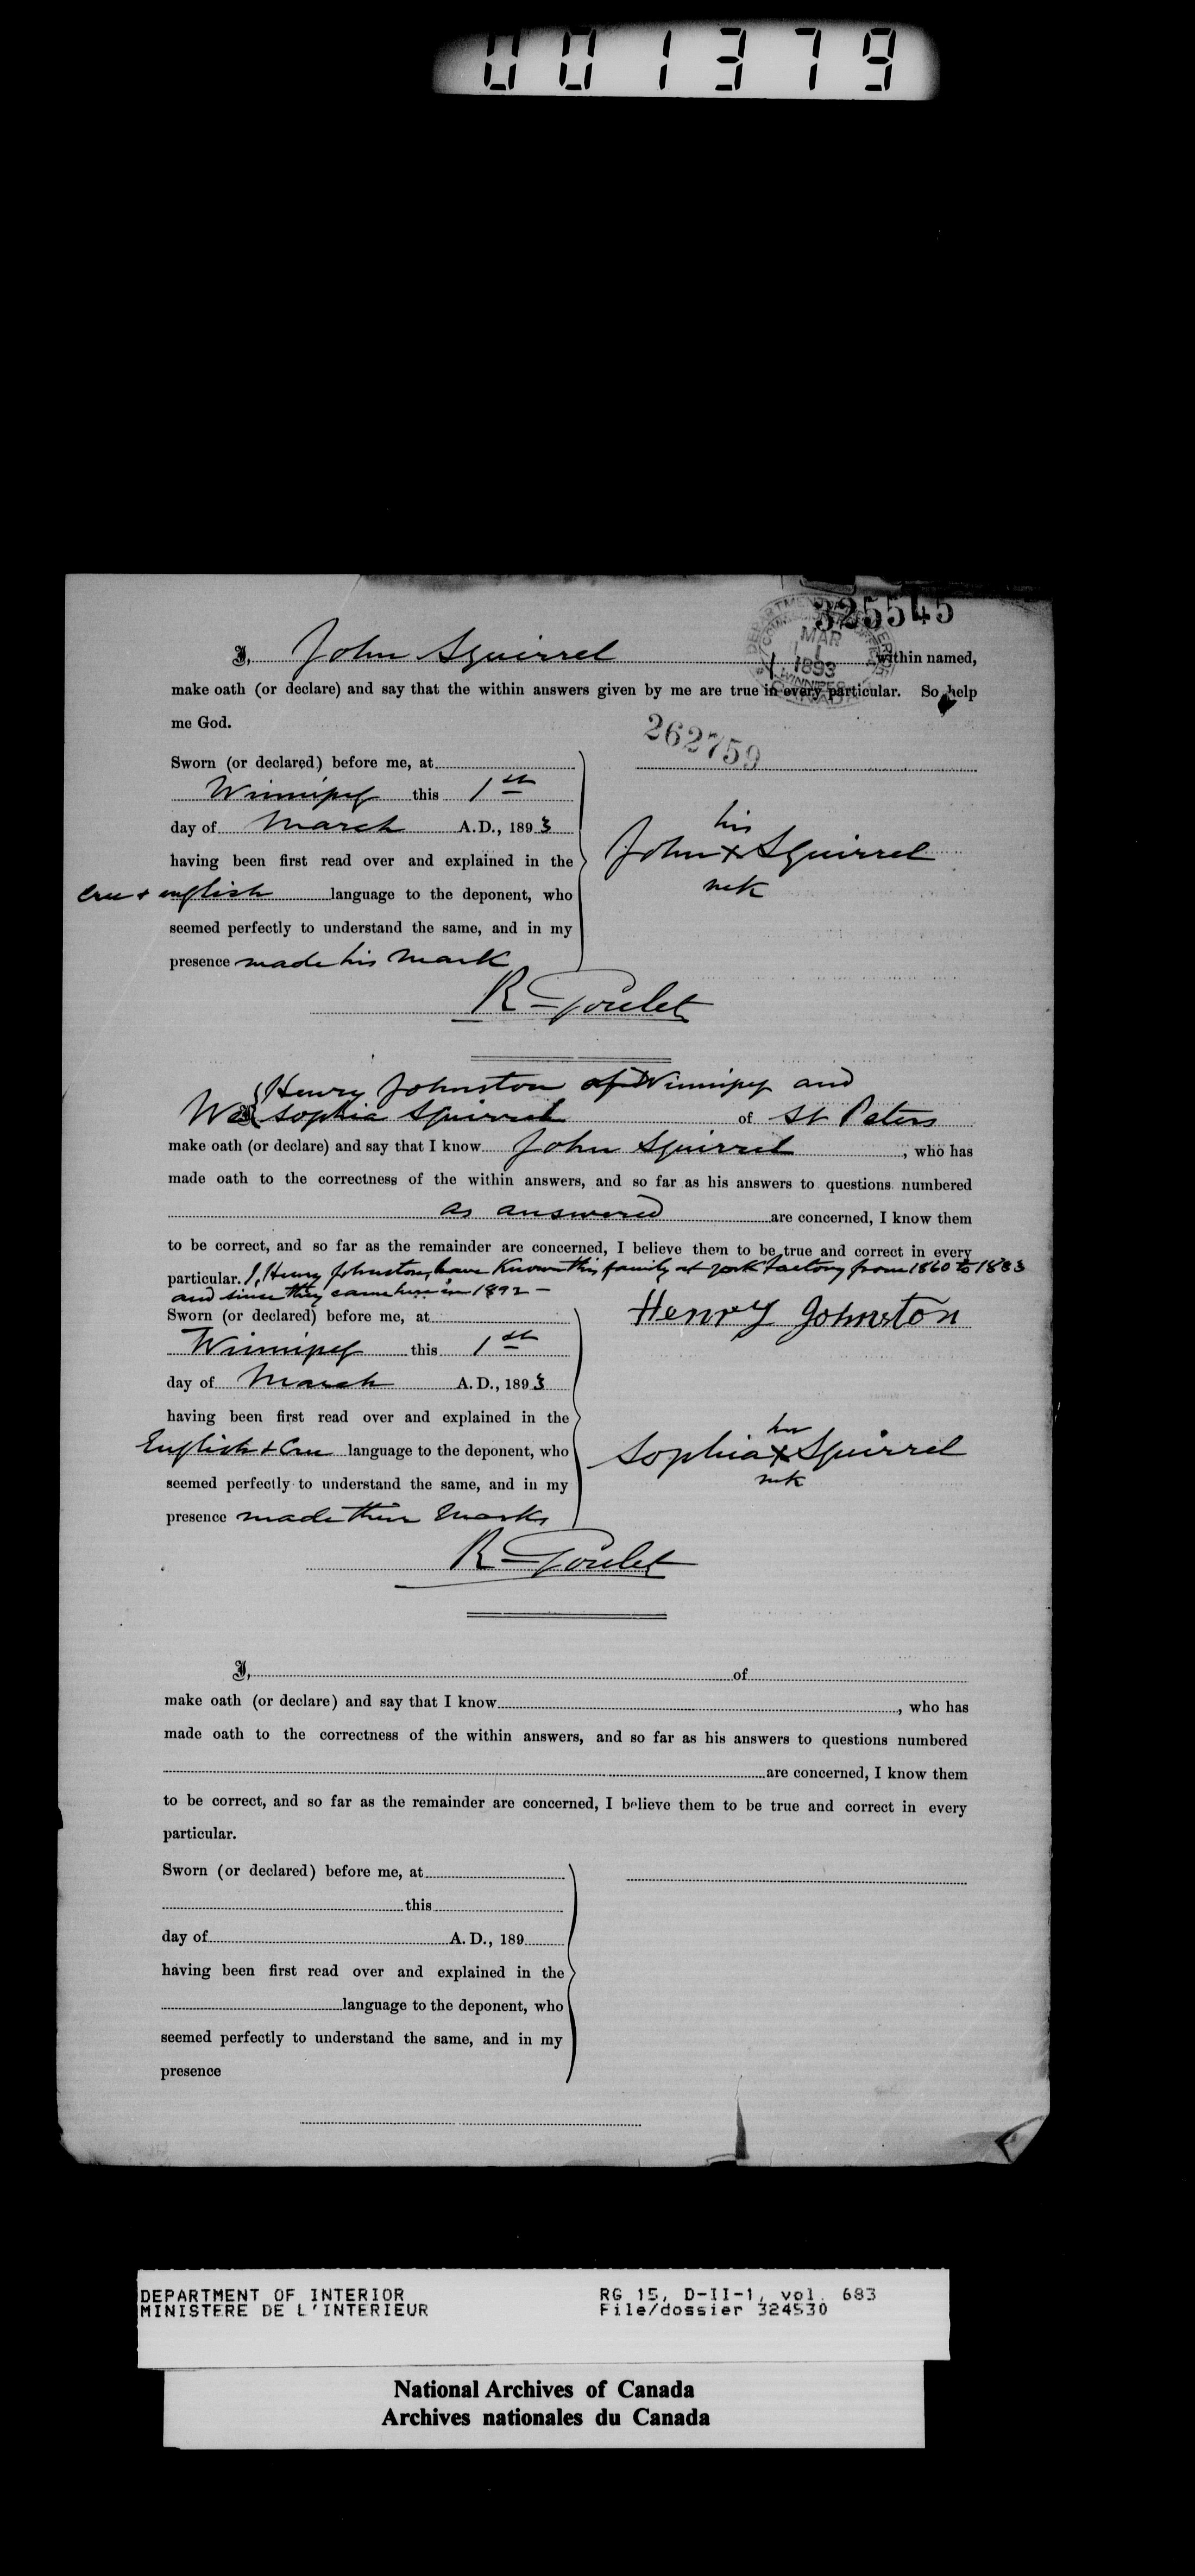 001379
325545
I, John Squirrel within named,
MAR
1
1893
WINNIPEG
CANADA
make oath (or declare) and say that the within answers given by me are true in every particular. So help
me God.
262759
Sworn (or declared) before me, at
Winnipeg this 1st
day of March A.D., 1893
having been first read over and explained in the
Cree & english language to the deponent, who
seemed perfectly to understand the same, and in my
presence made his mark
his
John X Squirrel
mk
R Goulet
Henry Johnston of Winnipeg and
We Sophia Squirrel of St Peters
make oath (or declare) and say that I know John Squirrel, who has
made oath to the correctness of the within answers, and so far as his answers to questions numbered
as answered are concerned, I know them
to be correct, and so far as the remainder are concerned, I believe them to be true and correct in every
particular. I, Henry Johnston, have known this family at York Factory from 1860 to 1883
and since they came here in 1892 —
Sworn (or declared) before me, at
Henry Johnston
Winnipeg this 1st
day of March A.D., 1893
having been first read over and explained in the
English & Cree language to the deponent, who
seemed perfectly to understand the same, and in my
presence made their marks
her
Sophia X Squirrel
mk
R Goulet
I, of
make oath (or declare) and say that I know, who has
made oath to the correctness of the within answers, and so far as his answers to questions numbered
are concerned, I know them
to be correct, and so far as the remainder are concerned, I believe them to be true and correct in every
particular.
Sworn (or declared) before me, at
this
day of A.D., 189
having been first read over and explained in the
language to the deponent, who
seemed perfectly to understand the same, and in my
presence
DEPARTMENT OF INTERIOR RG 15, D-II-1, vol. 683
MINISTERE DE L'INTERIEUR File/dossier 324530
National Archives of Canada
Archives nationales du Canada